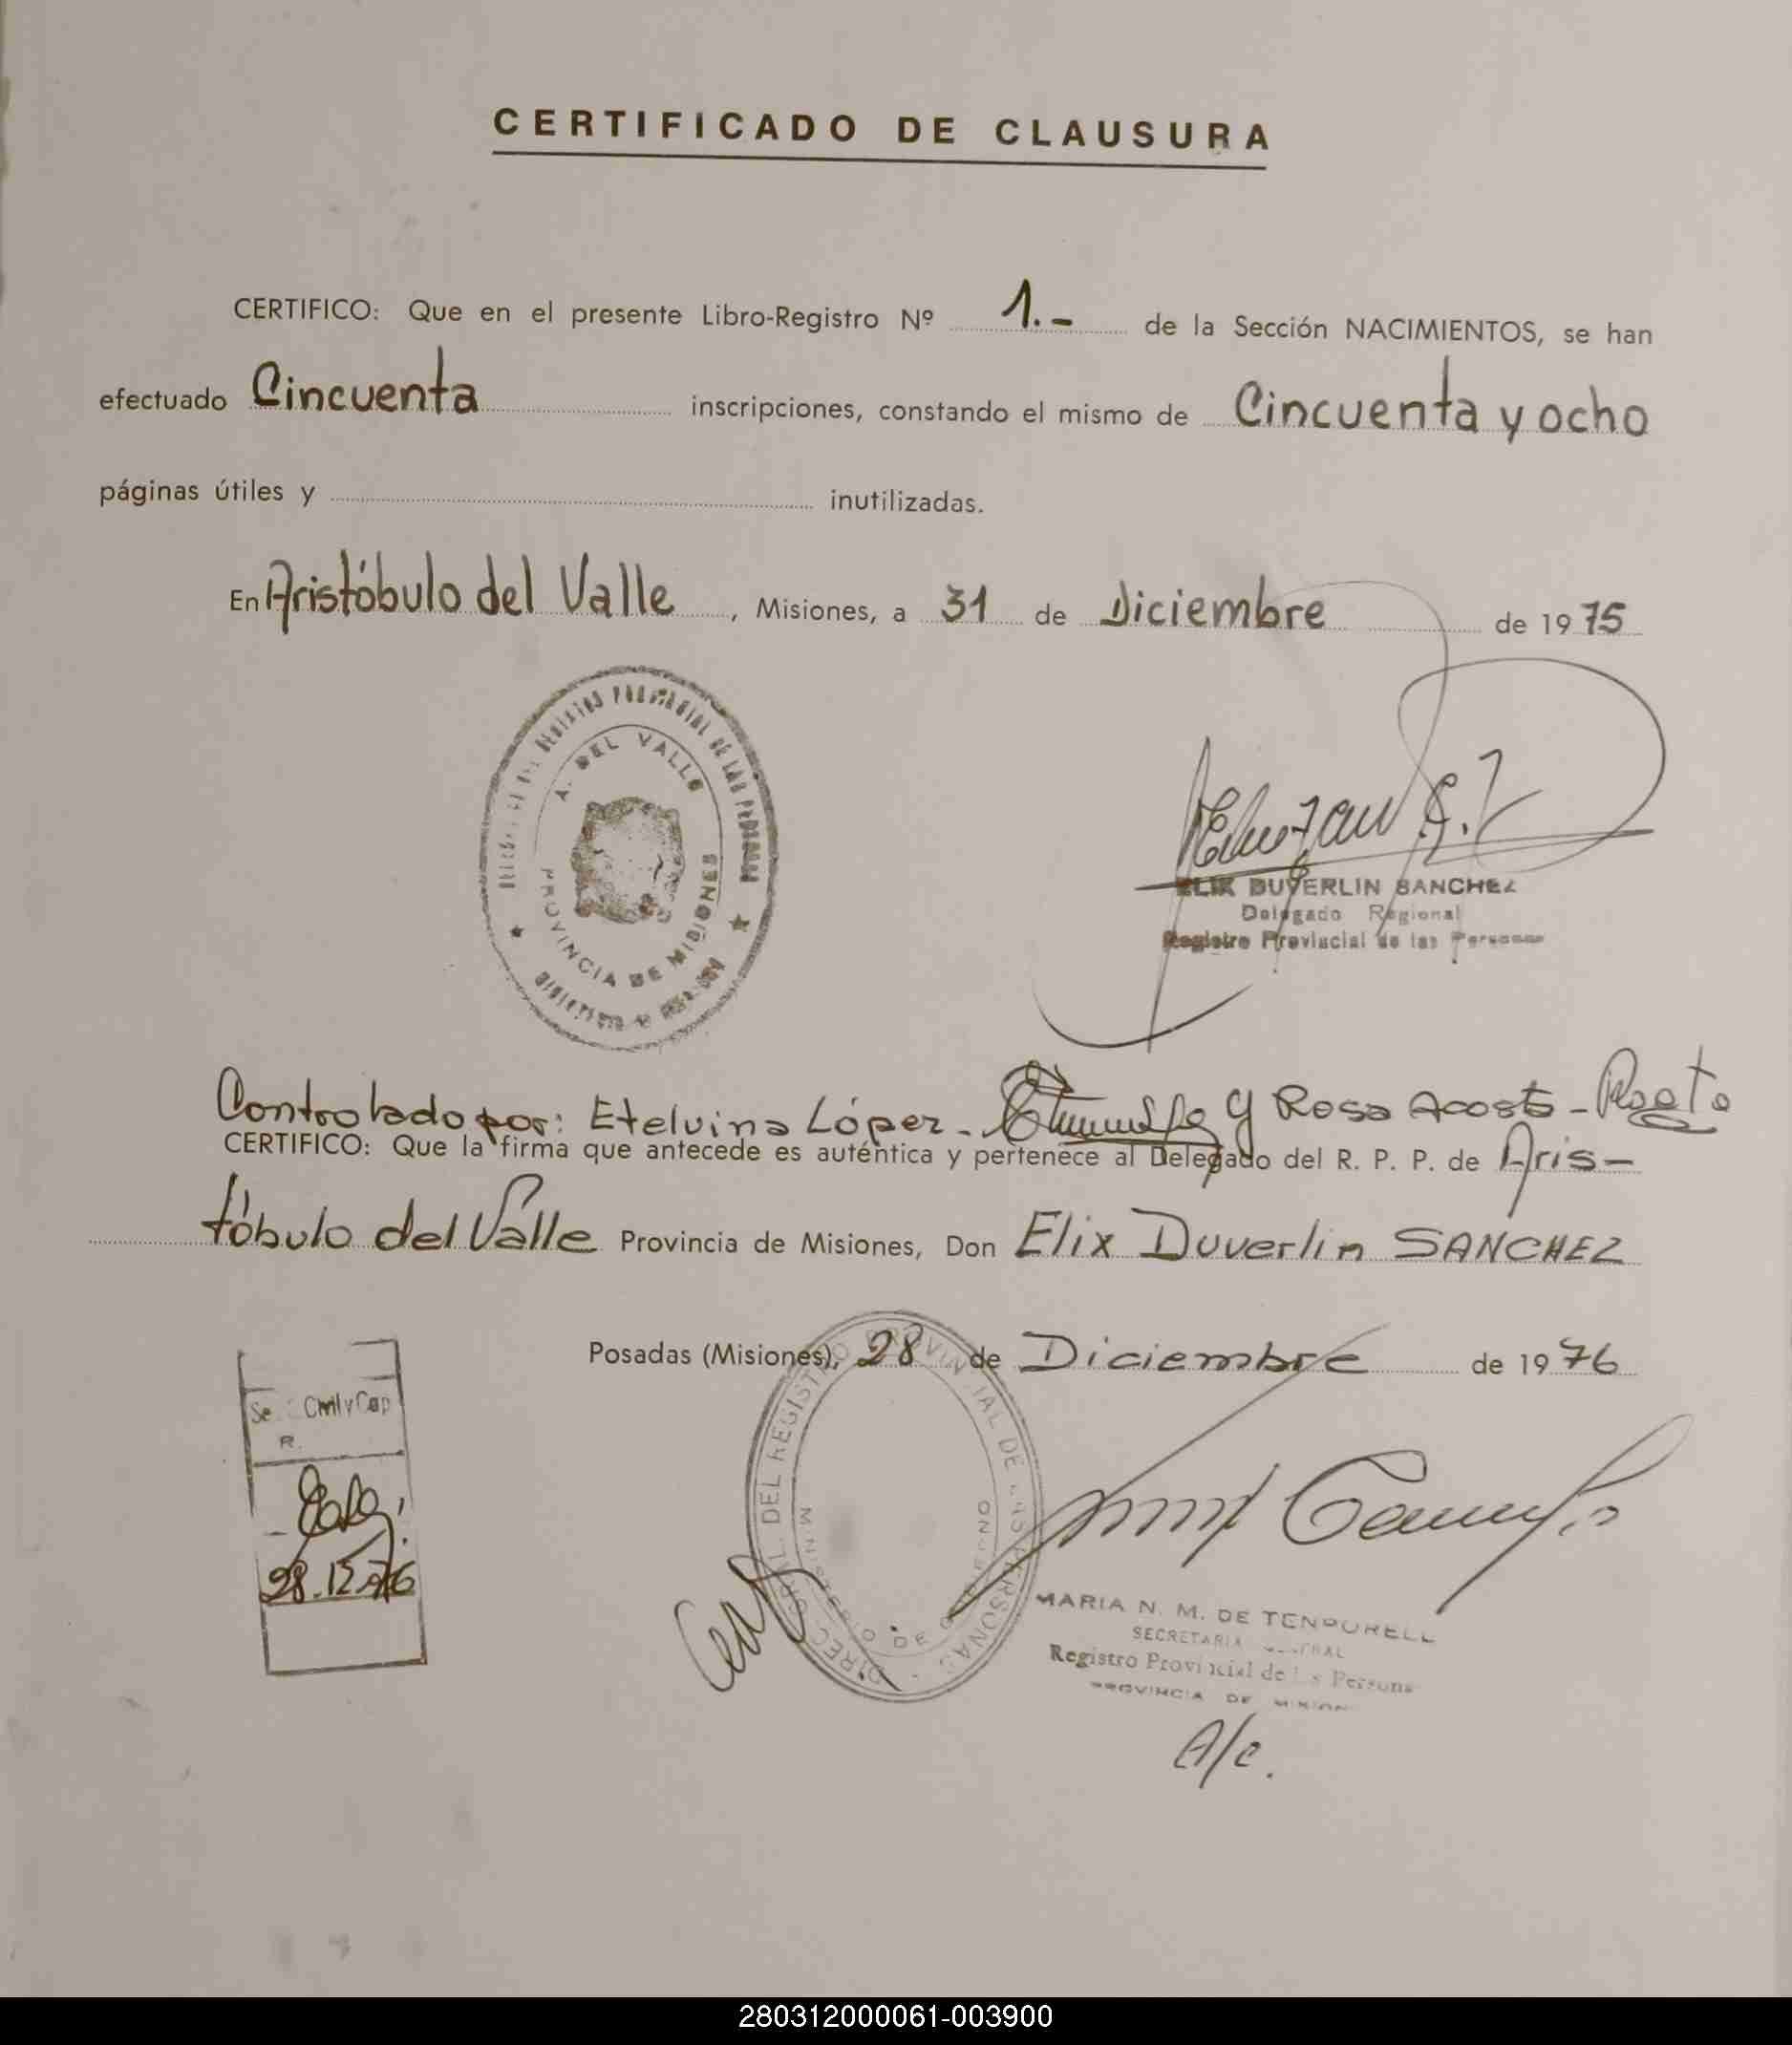 CERTIFICADO DE CLAUSURA
CERTIFICO: Que en el presente Libro-Registro Nº 1.- de la Sección NACIMIENTOS, se han
efectuado Cincuenta inscripciones, constando el mismo de Cincuenta y ocho
páginas útiles y inutilizadas.
En Aristóbulo del Valle, Misiones, a 31 de Diciembre de 1975
A. DEL VALLE
PROVINCIA DE MISIONES
ELIX DUVERLIN SANCHEZ
Delegado Regional
Registro Provincial de las Personas
Controlado por: Etelvina López - y Rosa Acosta -
CERTIFICO: Que la firma que antecede es auténtica y pertenece al Delegado del R. P. P. de Aris-
tóbulo del Valle Provincia de Misiones, Don Elix Duverlin SANCHEZ
Posadas (Misiones), 28 de Diciembre de 1976
Civil y Cap
R.
28.12.76
DIREC. GRAL. DEL REGISTRO PROVINCIAL DE LAS PERSONAS
MINISTERIO DE GOBIERNO
MARIA N. M. DE
SECRETARIA
Registro Provincial de las Persona
PROVINCIA DE MISION
A/c.
280312000061-003900